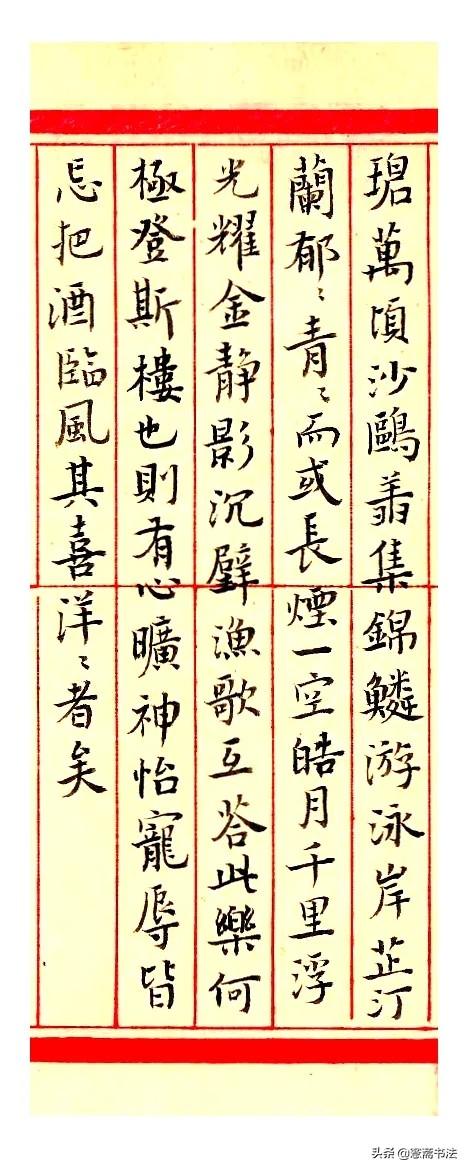 碧萬頃沙鷗翔集錦鱗游泳岸芷汀
蘭郁〻青〻而或長煙一空皓月千里浮
光耀金静影沉璧漁歌互荅此樂何
極登斯樓也則有心曠神怡寵辱皆
忘把酒臨風其喜洋〻者矣
头条 @书法